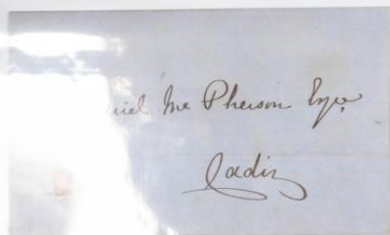 Mc Pherson Esqr.
Cadiz